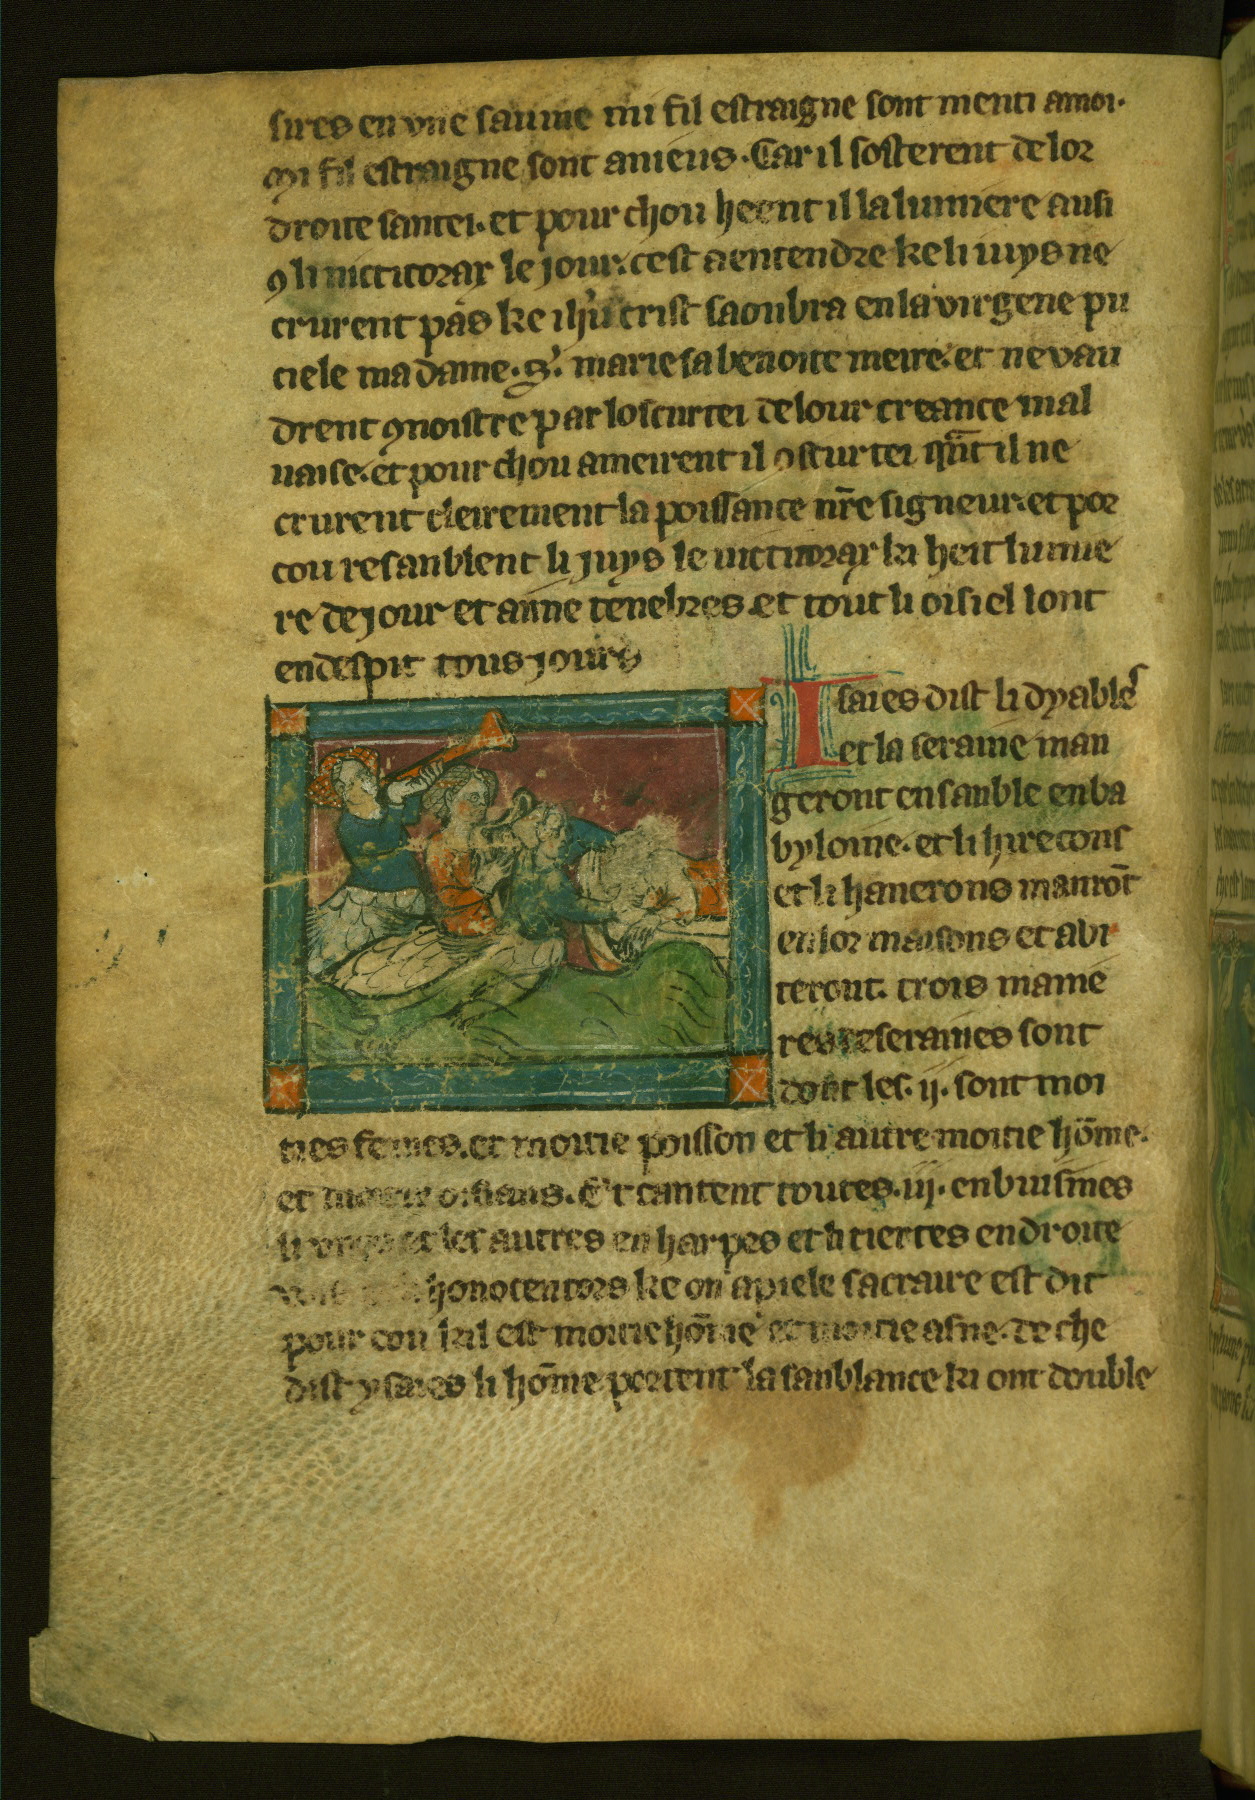 sires en vne saume mi fil estraigne sont menti a moi.
Mi fil estraigne sont anieus. Car il sosterent de lor
droite santei. et pour chou heent il la lumiere ausi
ꝯ li nicticorax le jour. cest a entendre ke li iuys ne
crurent pas ke ihu crist saonbra en la virgene pu
ciele ma dame. s. marie sa benoite meire. et ne vau
drent ꝯnoistre par loscurtei de lour creance mal
uaise. et pour chou ameirent il oscurtei qñt il ne
crurent cleirement la poissance nr̄e signeur. et por
cou resanblent li juys le nicticorax ki heit lumie
re de jour et aime tenebres. et tout li oisiel lont
en despit tous jours
Isaies dist li dyables
et la seraine man
geront ensanble en ba
byloine. et li hirecons
et li hanerons manrōt
en lor maisons et abi
teront. trois manie
res deseraines sont
dont les .ij. sont moi
ties femes. et moitie poisson et li autre moitie hōme.
et moitie oisiaus. Et cantent toutes .iij. en buisines
et les autres en harpes et li tiertes en droite
honocentors ke on apiele sacraire est dit
pour cou kil est moitie hōme et moitie asne. De che
dist ysaies li hōme portent la sanblance ki ont double